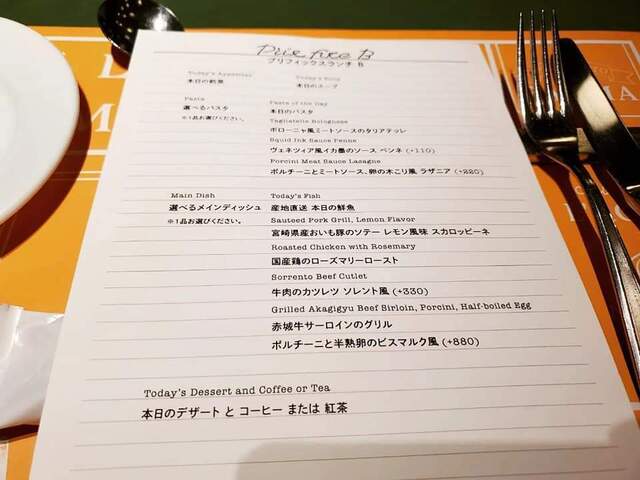 Prix fixe B
プリフィックスランチ B
Today's Appetizer
本日の前菜
Today's Soup
本日のスープ
Pasta
選べるパスタ
※1品お選びください。
Pasta of the Day
本日のパスタ
Tagliatelle Bolognese
ボローニャ風ミートソースのタリアテッレ
Squid Ink Sauce Penne
ヴェネツィア風イカ墨のソース ペンネ (+110)
Porcini Meat Sauce Lasagne
ポルチーニとミートソース、卵の木こり風 ラザニア (+220)
Main Dish
選べるメインディッシュ
※1品お選びください。
Today's Fish
産地直送 本日の鮮魚
Sauteed Pork Grill, Lemon Flavor
宮崎県産おいも豚のソテー レモン風味 スカロッピーネ
Roasted Chicken with Rosemary
国産鶏のローズマリーロースト
Sorrento Beef Cutlet
牛肉のカツレツ ソレント風 (+330)
Grilled Akagigyu Beef Sirloin, Porcini, Half-boiled Egg
赤城牛サーロインのグリル
ポルチーニと半熟卵のビスマルク風 (+880)
Today's Dessert and Coffee or Tea
本日のデザート と コーヒー または 紅茶